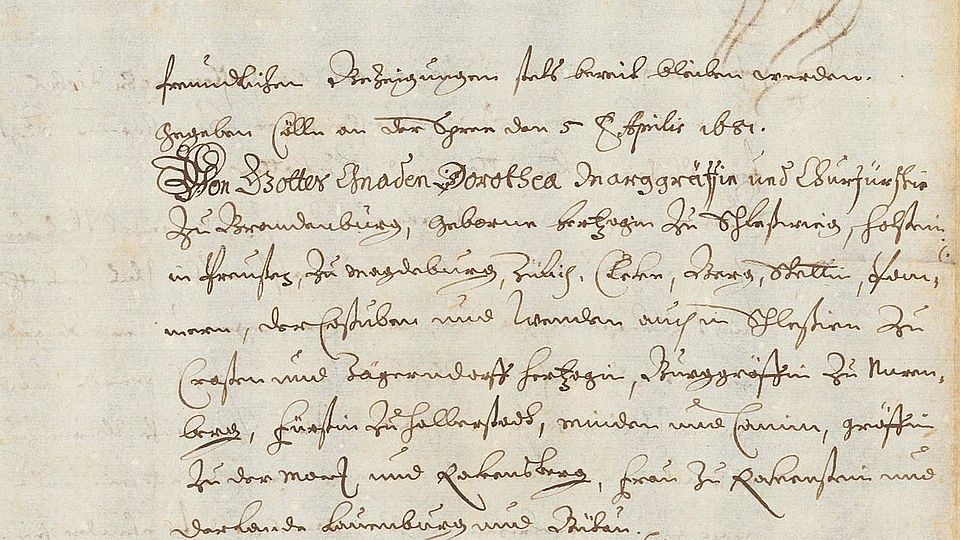 freundlichen Bezeigungen stets bereit bleiben werden.
Gegeben Cölln an der Spree den 5 Aprilis 1681.
Von Gottes Gnaden Dorothea Marggräffin und Churfürstin
zu Brandenburg, geborne Hertzogin zu Schleßwieg, Holstein
in Preußen, zu Magdeburg, Jülich, Cleve, Berg, Stettin, Pom-
mern, der Caßuben und Wenden auch in Schleßien zu
Croßen und Jägerndorff Hertzogin, Burggräffin zu Nuren-
berg, Fürstin zu Halberstadt, Minden und Camin, Gräffin
zu der Marck und Ravensberg, Frau zu Ravenstein und
der Lande Lauenburg und Bütau.